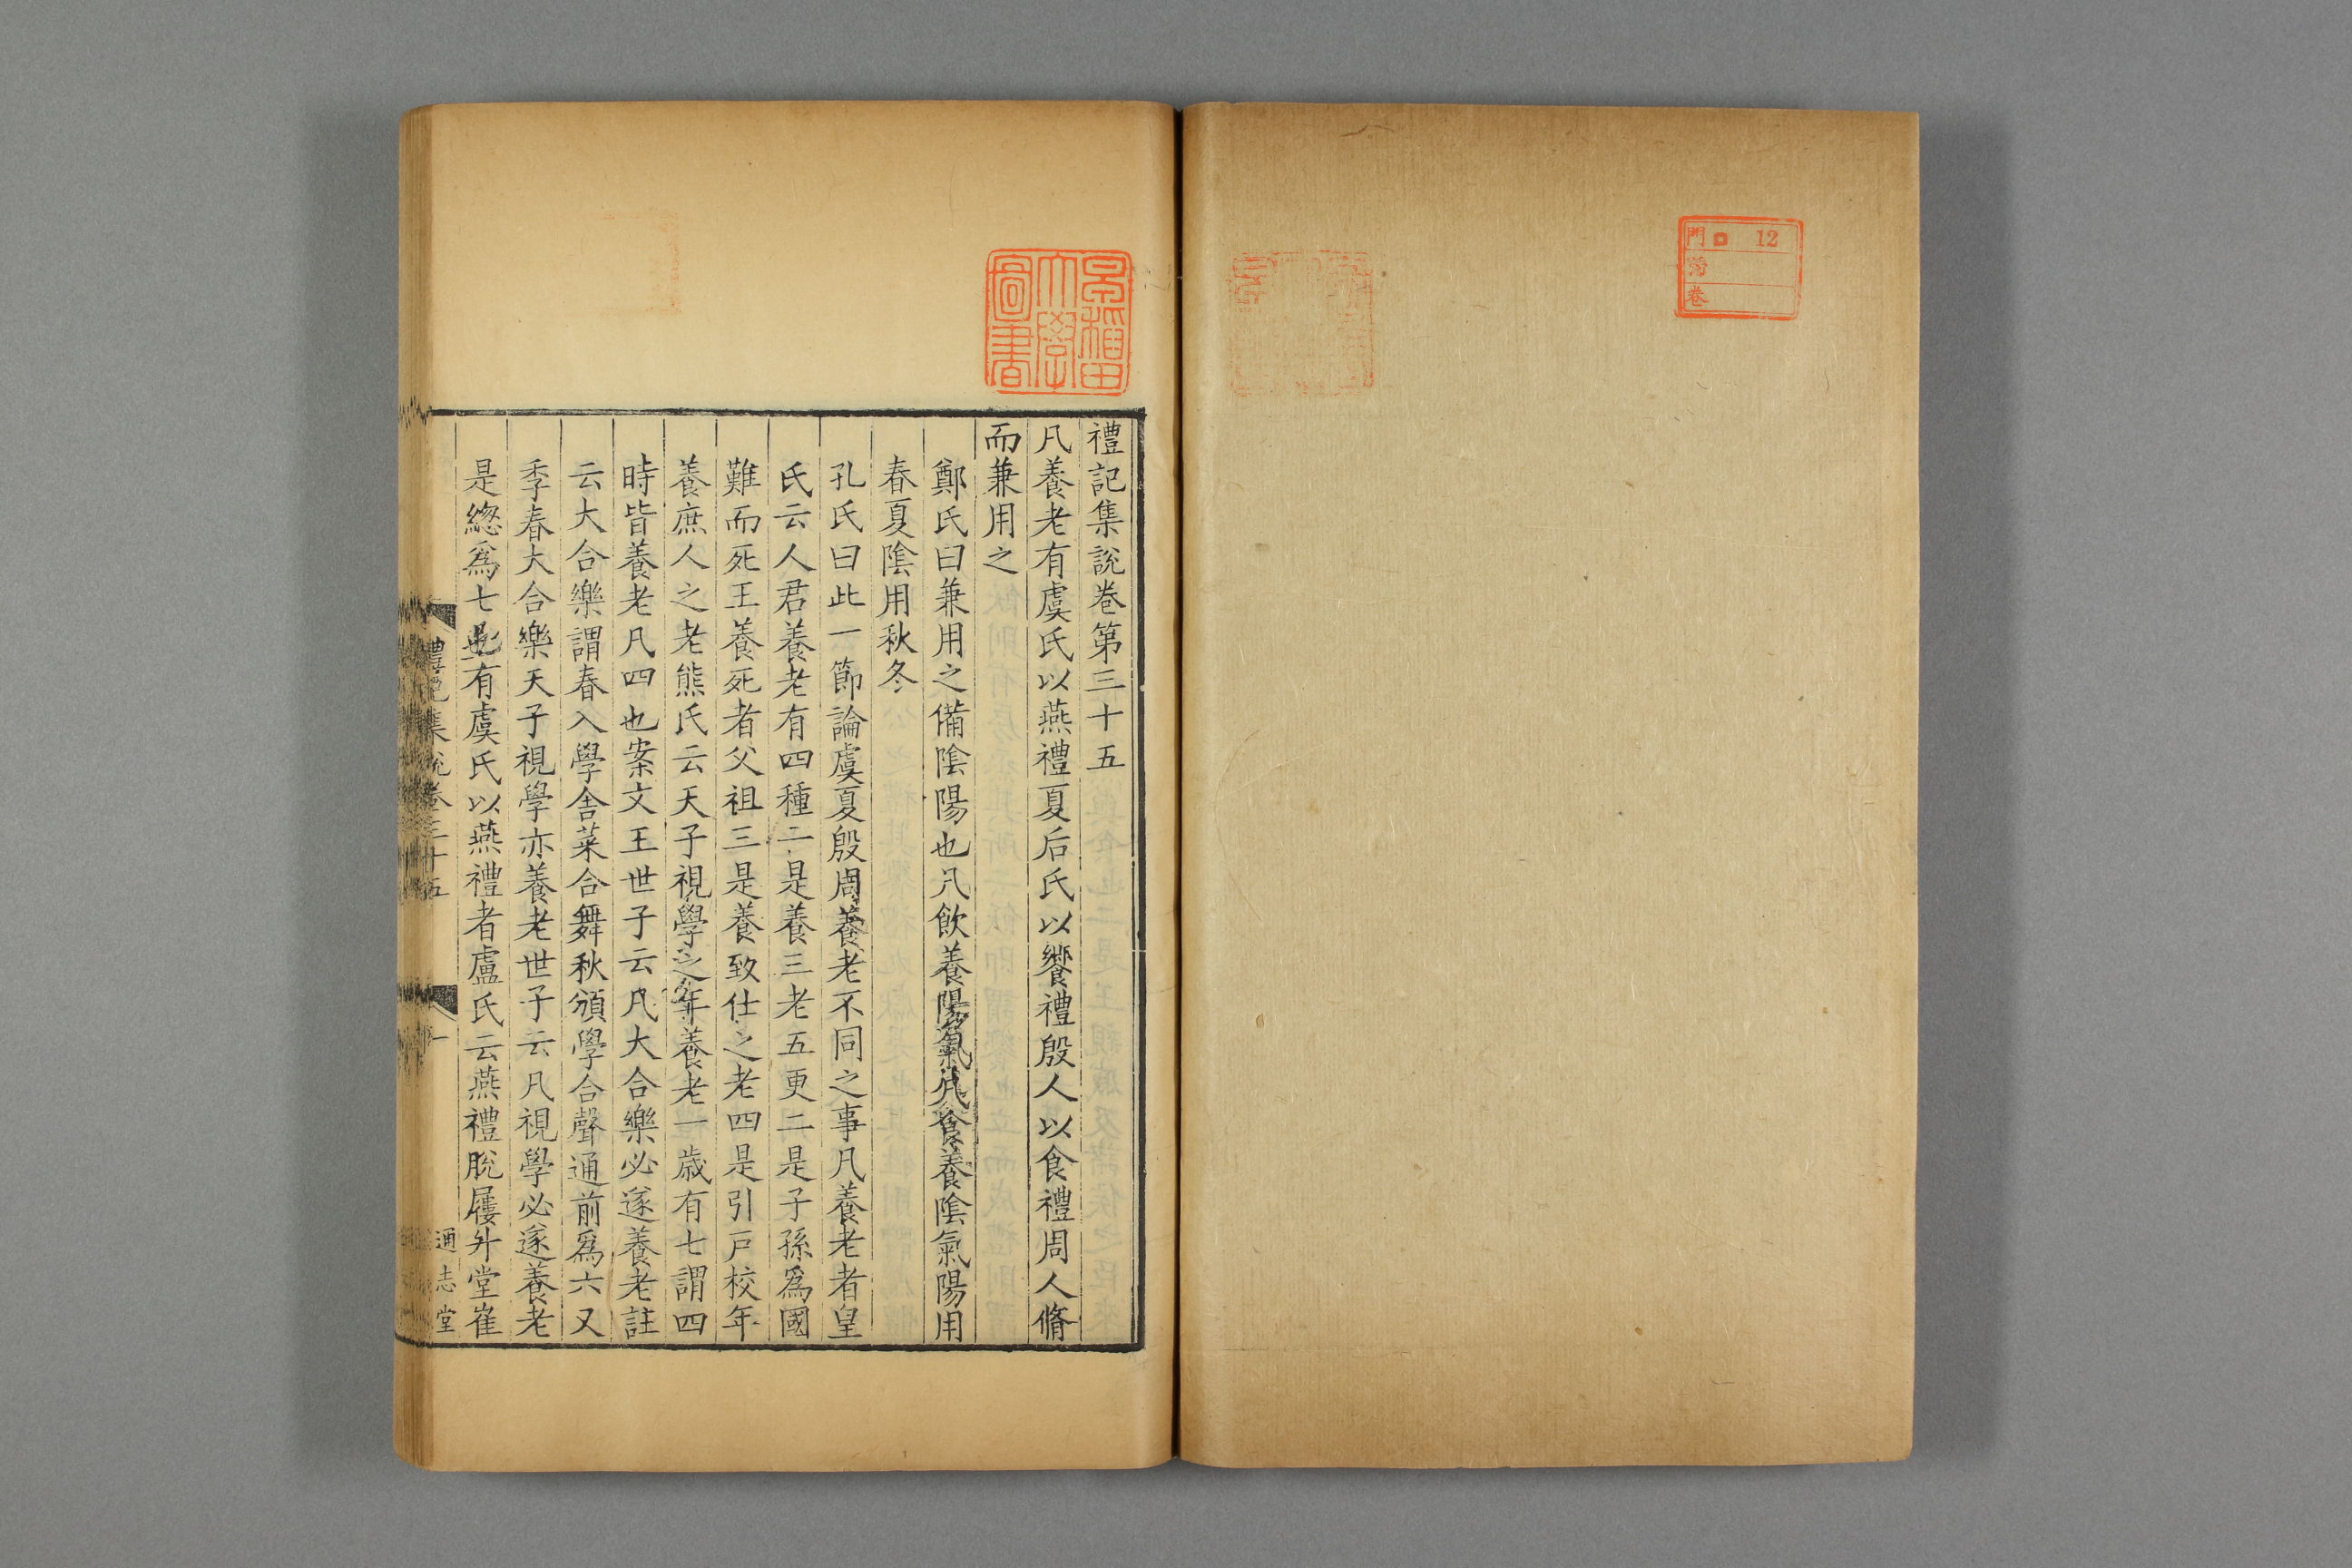 門 12
番
卷
早稲田
大學
圖書
禮記集說卷第三十五
凡養老有虞氏以燕禮夏后氏以饗禮殷人以食禮周人脩
而兼用之
鄭氏曰兼用之備陰陽也凡飲養陽氣凡食養陰氣陽用
春夏陰用秋冬
孔氏曰此一節論虞夏殷周養老不同之事凡養老者皇
氏云人君養老有四種一是養三老五更二是子孫爲國
難而死王養死者父祖三是養致仕之老四是引戸校年
養庶人之老熊氏云天子視學之年養老一歲有七謂四
時皆養老凡四也案文王世子云凡大合樂必遂養老註
云大合樂謂春入學舍菜合舞秋頒學合聲通前爲六又
季春大合樂天子視學亦養老世子云凡視學必遂養老
是緫爲七也有虞氏以燕禮者盧氏云燕禮脫屨升堂崔
禮記集說卷三十五
一
通志堂